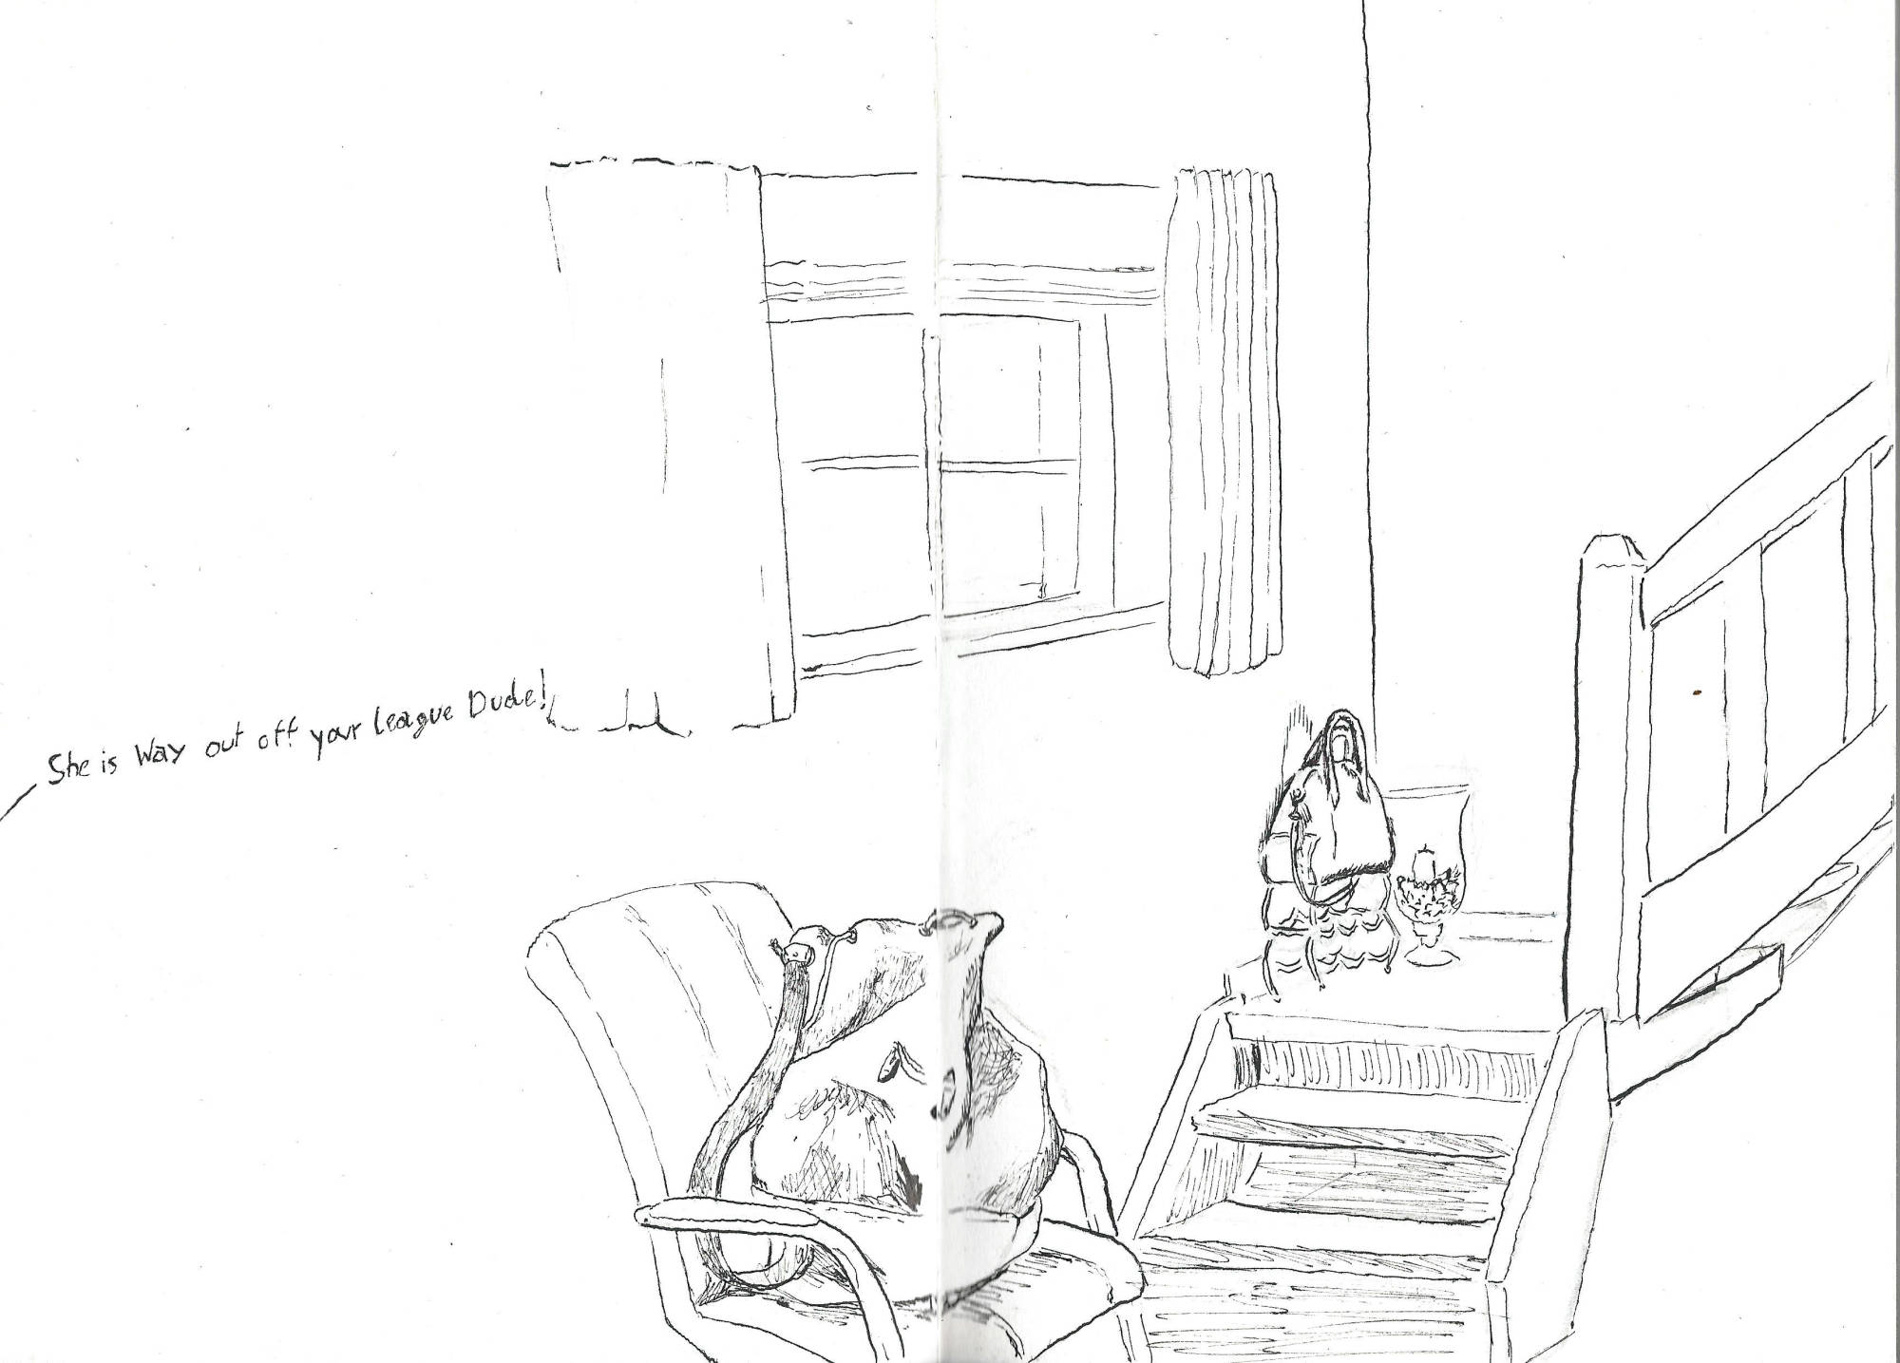 She is Way out off your league Dude!